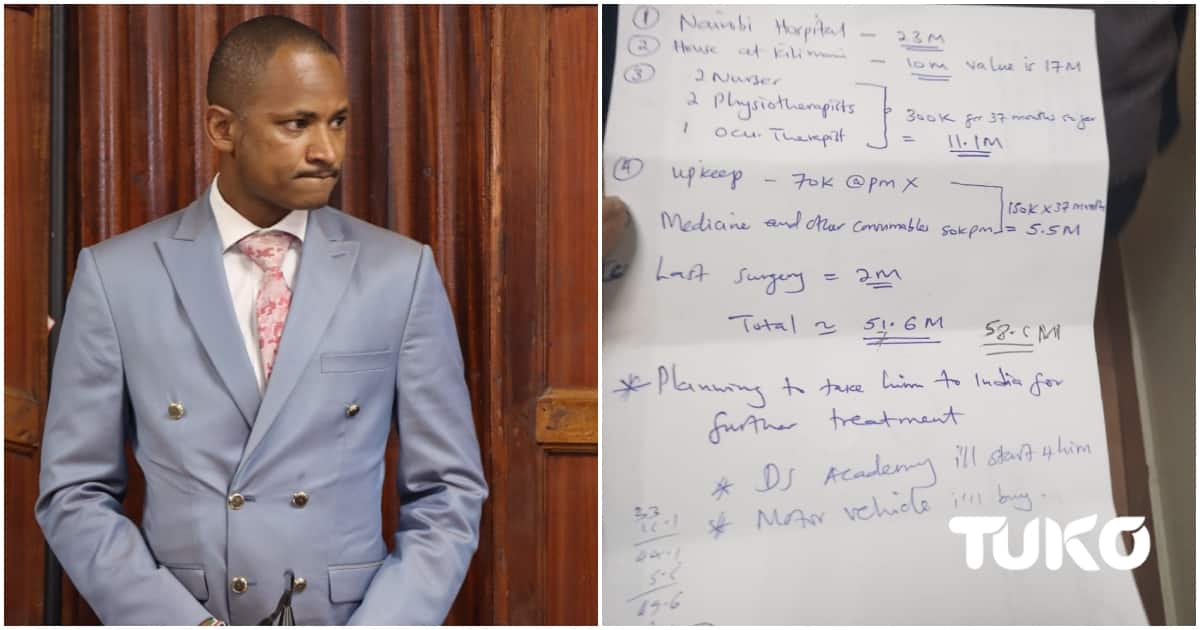 ① Nairobi Hospital – 23M
② House at Kilimani – 10m value is 17M
③ 2 Nurses
2 Physiotherapists
1 Occu. Therapist
300K for 37 months so far
= 11.1M
④ upkeep – 70K @pm x
Medicine and other consumables 50k pm
150K x 37 months
= 5.5M
Last surgery = 2M
Total ≈ 51.6M
* Planning to take him to India for
further treatment
* DJ Academy i'll start 4 him
* Motor vehicle i'll buy.
TUKO